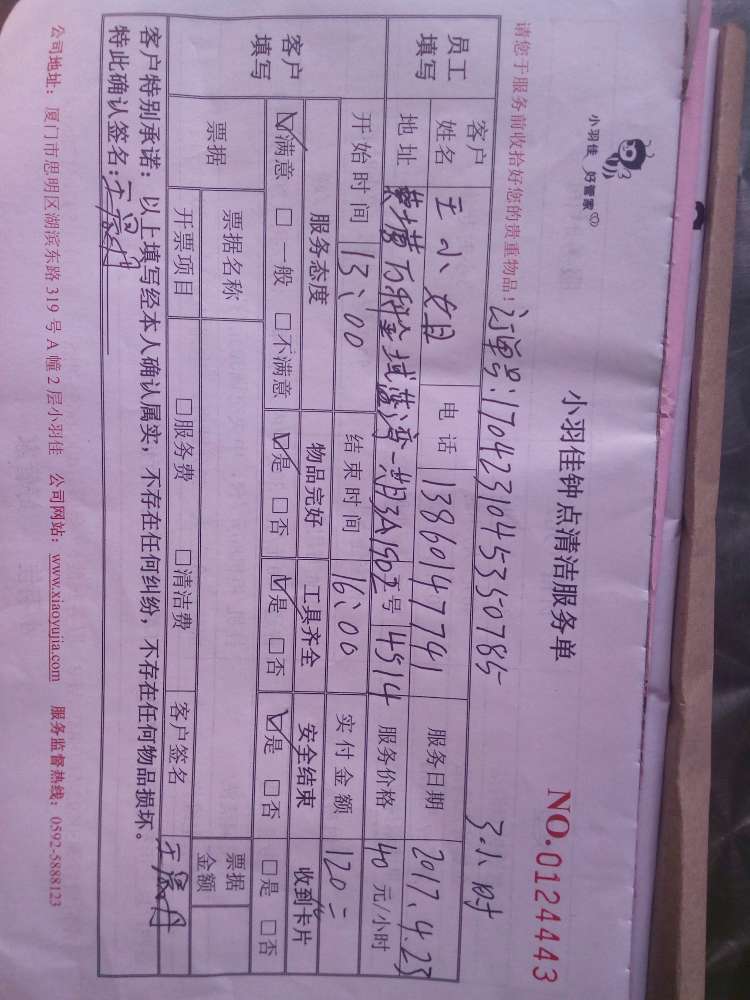 小羽佳 好管家
小羽佳钟点清洁服务单
NO.0124443
请您于服务前收拾好您的贵重物品!
订单号:17042310453350785
3小时
员工填写
客户姓名 王小姐 电话 13860147741 服务日期 2017.4.23
地址 万科金域蓝湾一期3A1502 工号 4514 服务价格 40 元/小时
客户填写
开始时间 13:00 结束时间 16:00 实付金额 120
服务态度 物品完好 工具齐全 安全结束 收到卡片
☑满意 □一般 □不满意 ☑是 □否 ☑是 □否 ☑是 □否 □是 □否
票据 票据名称 票据金额
开票项目 □服务费 □清洁费 客户签名
客户特别承诺:以上填写经本人确认属实,不存在任何纠纷,不存在任何物品损坏。
特此确认签名:
公司地址:厦门市思明区湖滨东路 319 号 A 幢 2 层小羽佳 公司网站:www.xiaoyujia.com 服务监督热线:0592-5888123